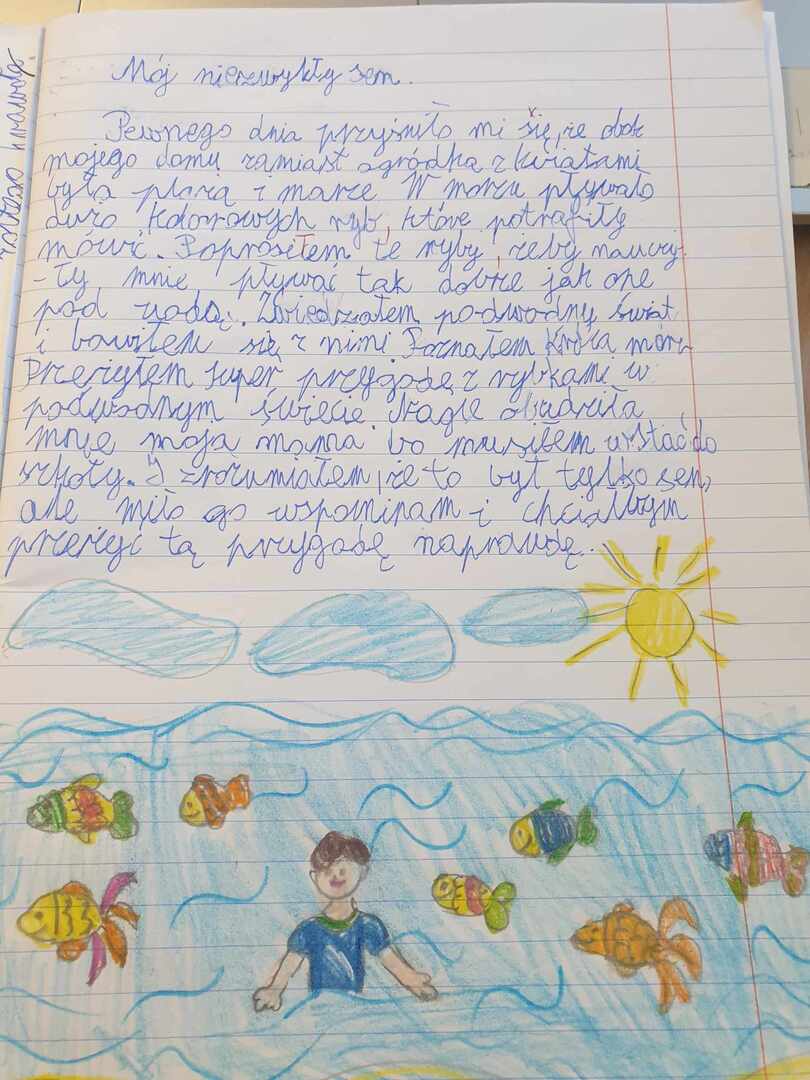 Mój niezwykły sen.
Pewnego dnia przyśniło mi się, że obok
mojego domu zamiast ogródka z kwiatami
była plaża i morze. W morzu pływało
dużo kolorowych ryb, które potrafiły
mówić. Poprosiłem te ryby, żeby nauczy-
-ły mnie pływać tak dobrze jak one
pod wodą. Zwiedzałem podwodny świat
i bawiłem się z nimi. Poznałem króla mórz.
Przeżyłem super przygodę z rybkami w
podwodnym świecie. Nagle obudziła
mnie moja mama bo musiałem wstać do
szkoły. I zrozumiałem, że to był tylko sen,
ale miło go wspominam i chciałbym
przeżyć tą przygodę naprawdę.